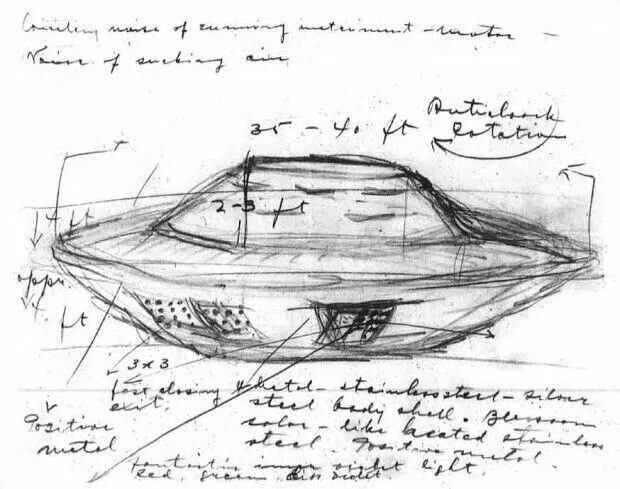 noise of running instrument - motor -
Noise of sucking air
35 - 40 ft
Anticlock
Rotation
2-3 ft
4 ft
appr.
4. ft
3x3
fast closing
exit.
Metal - stainless steel - silver
steel body shell.
color - like heated stainless
steel. Positive metal.
Positive
metal
inner violet light.
red, green, violet.